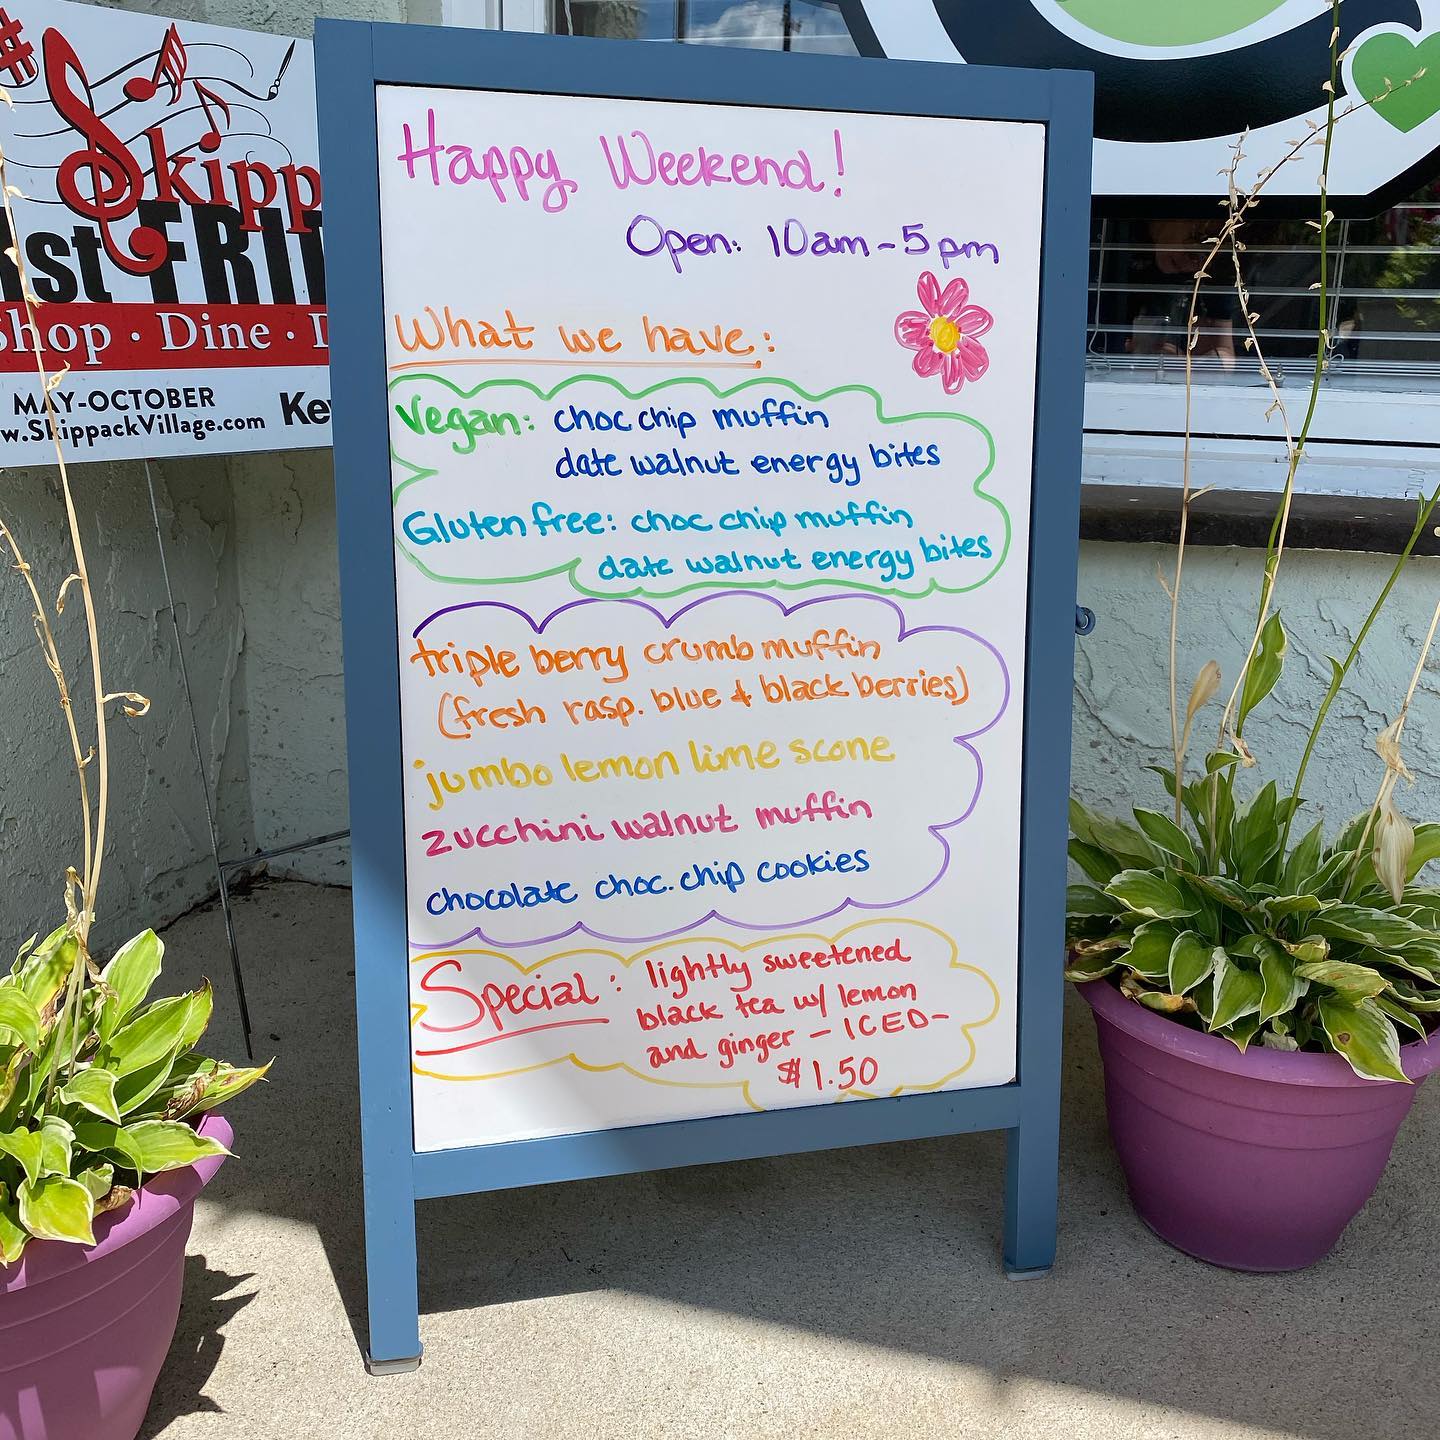 Happy Weekend!
Open: 10am-5pm
What we have:
Vegan: choc chip muffin
date walnut energy bites
Gluten free: choc chip muffin
date walnut energy bites
triple berry crumb muffin
(fresh rasp. blue & black berries)
jumbo lemon lime scone
zucchini walnut muffin
chocolate choc. chip cookies
Special: lightly sweetened
black tea w/ lemon
and ginger - ICED-
$1.50
#
Skipp
1st FRI
Shop · Dine ·
MAY-OCTOBER
w.SkippackVillage.com
Key